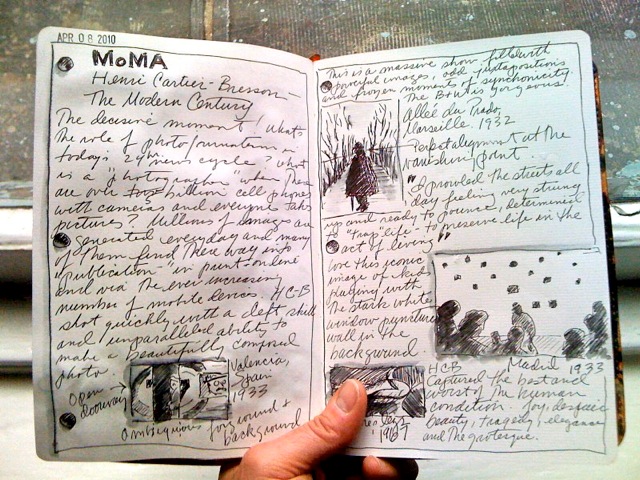 APR 08 2010
MoMA
Henri Cartier-Bresson -
The Modern Century
The decisive moment! What's
the role of photojournalism in
today's 24 hr news cycle? What
is a "photographer" when there
are over billion cell phones
with cameras and everyone takes
pictures? Millions of images are
generated everyday and many
of them find there way into
"publication" in print-online
and via the ever increasing
number of mobile devices. HC-B
shot quickly with a deft skill
and unparalleled ability to
make a beautifully composed
photo
Open →
doorway
Valencia,
Spain
1933
Ambiguious foreground &
background
This is a massive show filled with
powerful images, odd juxtapositions
and frozen moments of synchronicity.
The B+W is gorgeous.
Allée du Prado,
Marseille. 1932
Perfect alignment at the
vanishing point.
"I prowled the streets all
day feeling very strung
up and ready to pounce, determined
to "trap" life - to preserve life in the
act of living"
love this iconic
image of kids
playing with
the stark white
window punctured
wall in the
background
HCB Madrid 1933
Captured the best and
worst of the human
condition. Joy, despair
beauty, tragedy, elegance
and the grotesque.